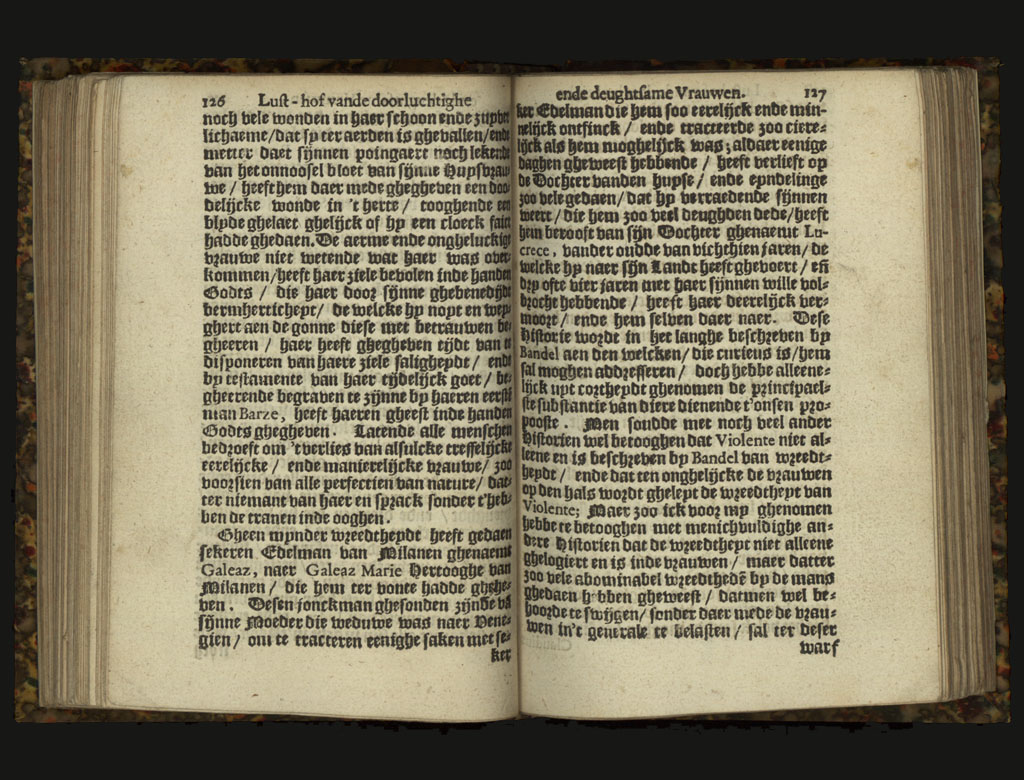 126 Lust-hof vande doorluchtighe
noch vele wonden in haer schoon ende zuyver
lichaeme/dat sy ter aerden is ghevallen/ende
metter daet sijnen poingaert noch lekende
van het onnoosel bloet van sijne Huysvrau
we / heeft hem daer mede ghegheven een doo
delijcke wonde in 't herte / tooghende een
blyde ghelaet ghelijck of hy een cloeck fait
hadde ghedaen. De aerme ende ongheluckige
vrauwe niet wetende wat haer was over
kommen/heeft haer ziele bevolen inde handen
Godts / die haer door sijnne ghebenedijde
bermhertichept / de welcke hy noyt en wey-
ghert aen de gonne diese met betrauwen be-
gheeren / haer heeft ghegheven tijdt van te
disponeren van haere ziele salighept / ende
by testamente van haer tijdelijck goet / be-
gheerende begraven te zijnne by haeren eersten
man Barze, heeft haeren gheest inde handen
Godts ghegheven. Latende alle menschen
bedroeft om 't verlies van alsulcke treffelijcke
eerelijcke / ende manierelijcke vrauwe/ zoo
voorsien van alle perfectien van nature/ dat-
ter niemant van haer en sprack sonder t'heb-
ben de tranen inde ooghen.
Gheen mynder wreedtheydt heeft gedaen
sekeren Edelman van Milanen ghenaemt
Galeaz, naer Galeaz Marie Hertooghe van
Milanen / die hem ter vonte hadde ghehe-
ven. Desen jonckman ghesonden zijnde van
sijnne Moeder die weduwe was naer Vene-
gien/ om te tracteren eenighe saken met se-
ker
ende deughtsame Vrauwen. 127
ker Edelman die hem soo eerelijck ende min-
nelijck ontfinck / ende tracteerde zoo ciere-
lijck als hem moghelijck was; aldaer eenige
daghen gheweest hebbende / heeft verlieft op
de Dochter vanden huyse/ ende eyndelinge
zoo vele gedaen/dat hy verraedende sijnnen
weert/die hem zoo veel deughden dede/heeft
hem berooft van sijn Dochter ghenaemt Lu-
crece, vander oudde van vichthien jaren/de
welcke hy naer sijn Landt heeft ghevoert / eñ
dry ofte vier jaren met haer sijnnen wille vol-
brocht hebbende / heeft haer deerelijck ver-
moort / ende hem selven daer naer. Dese
Historie wordt in het langhe beschreven by
Bandel aen den welcken/die curieus is/hem
sal moghen addresseren / doch hebbe alleene-
lijck uyt cortheydt ghenomen de principael-
ste substantie van diere dienende t'onsen pro-
pooste. Men soudde met noch veel ander
Historien wel betooghen dat Violente niet al-
leene en is beschreven by Bandel van wreedt-
heydt / ende dat ten onghelijcke de vrauwen
op den hals wordt gheleyt de wreedtheyt van
Violente; Maer zoo ick voor my ghenomen
hebbe te betooghen met menichvuldighe an-
dere Historien dat de wreedtheyt niet alleene
ghelogiert en is inde vrauwen / maer datter
zoo vele abominabel wreedthedē by de mans
ghedaen hebben gheweest / datmen wel be-
hoorde te swijgen/ sonder daer mede de vrau-
wen in't generale te belasten / sal ter deser
warf